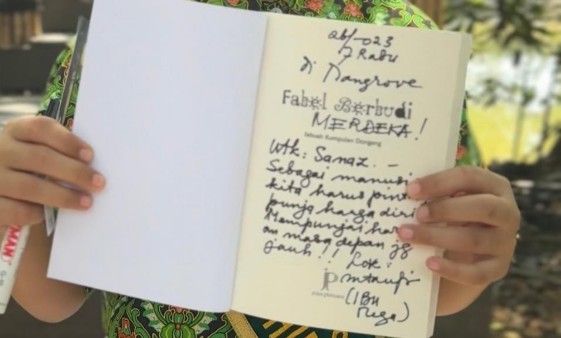 023
Rabu
Di Mangrove
Fabel Berbudi
MERDEKA!
Sebuah Kumpulan Dongeng
Utk: Sanaz. –
Sebagai manusi
kita harus pint
punya harga diri
Mempunyai har
an masa depan yg
jauh!!
jp
(IBU
MAN